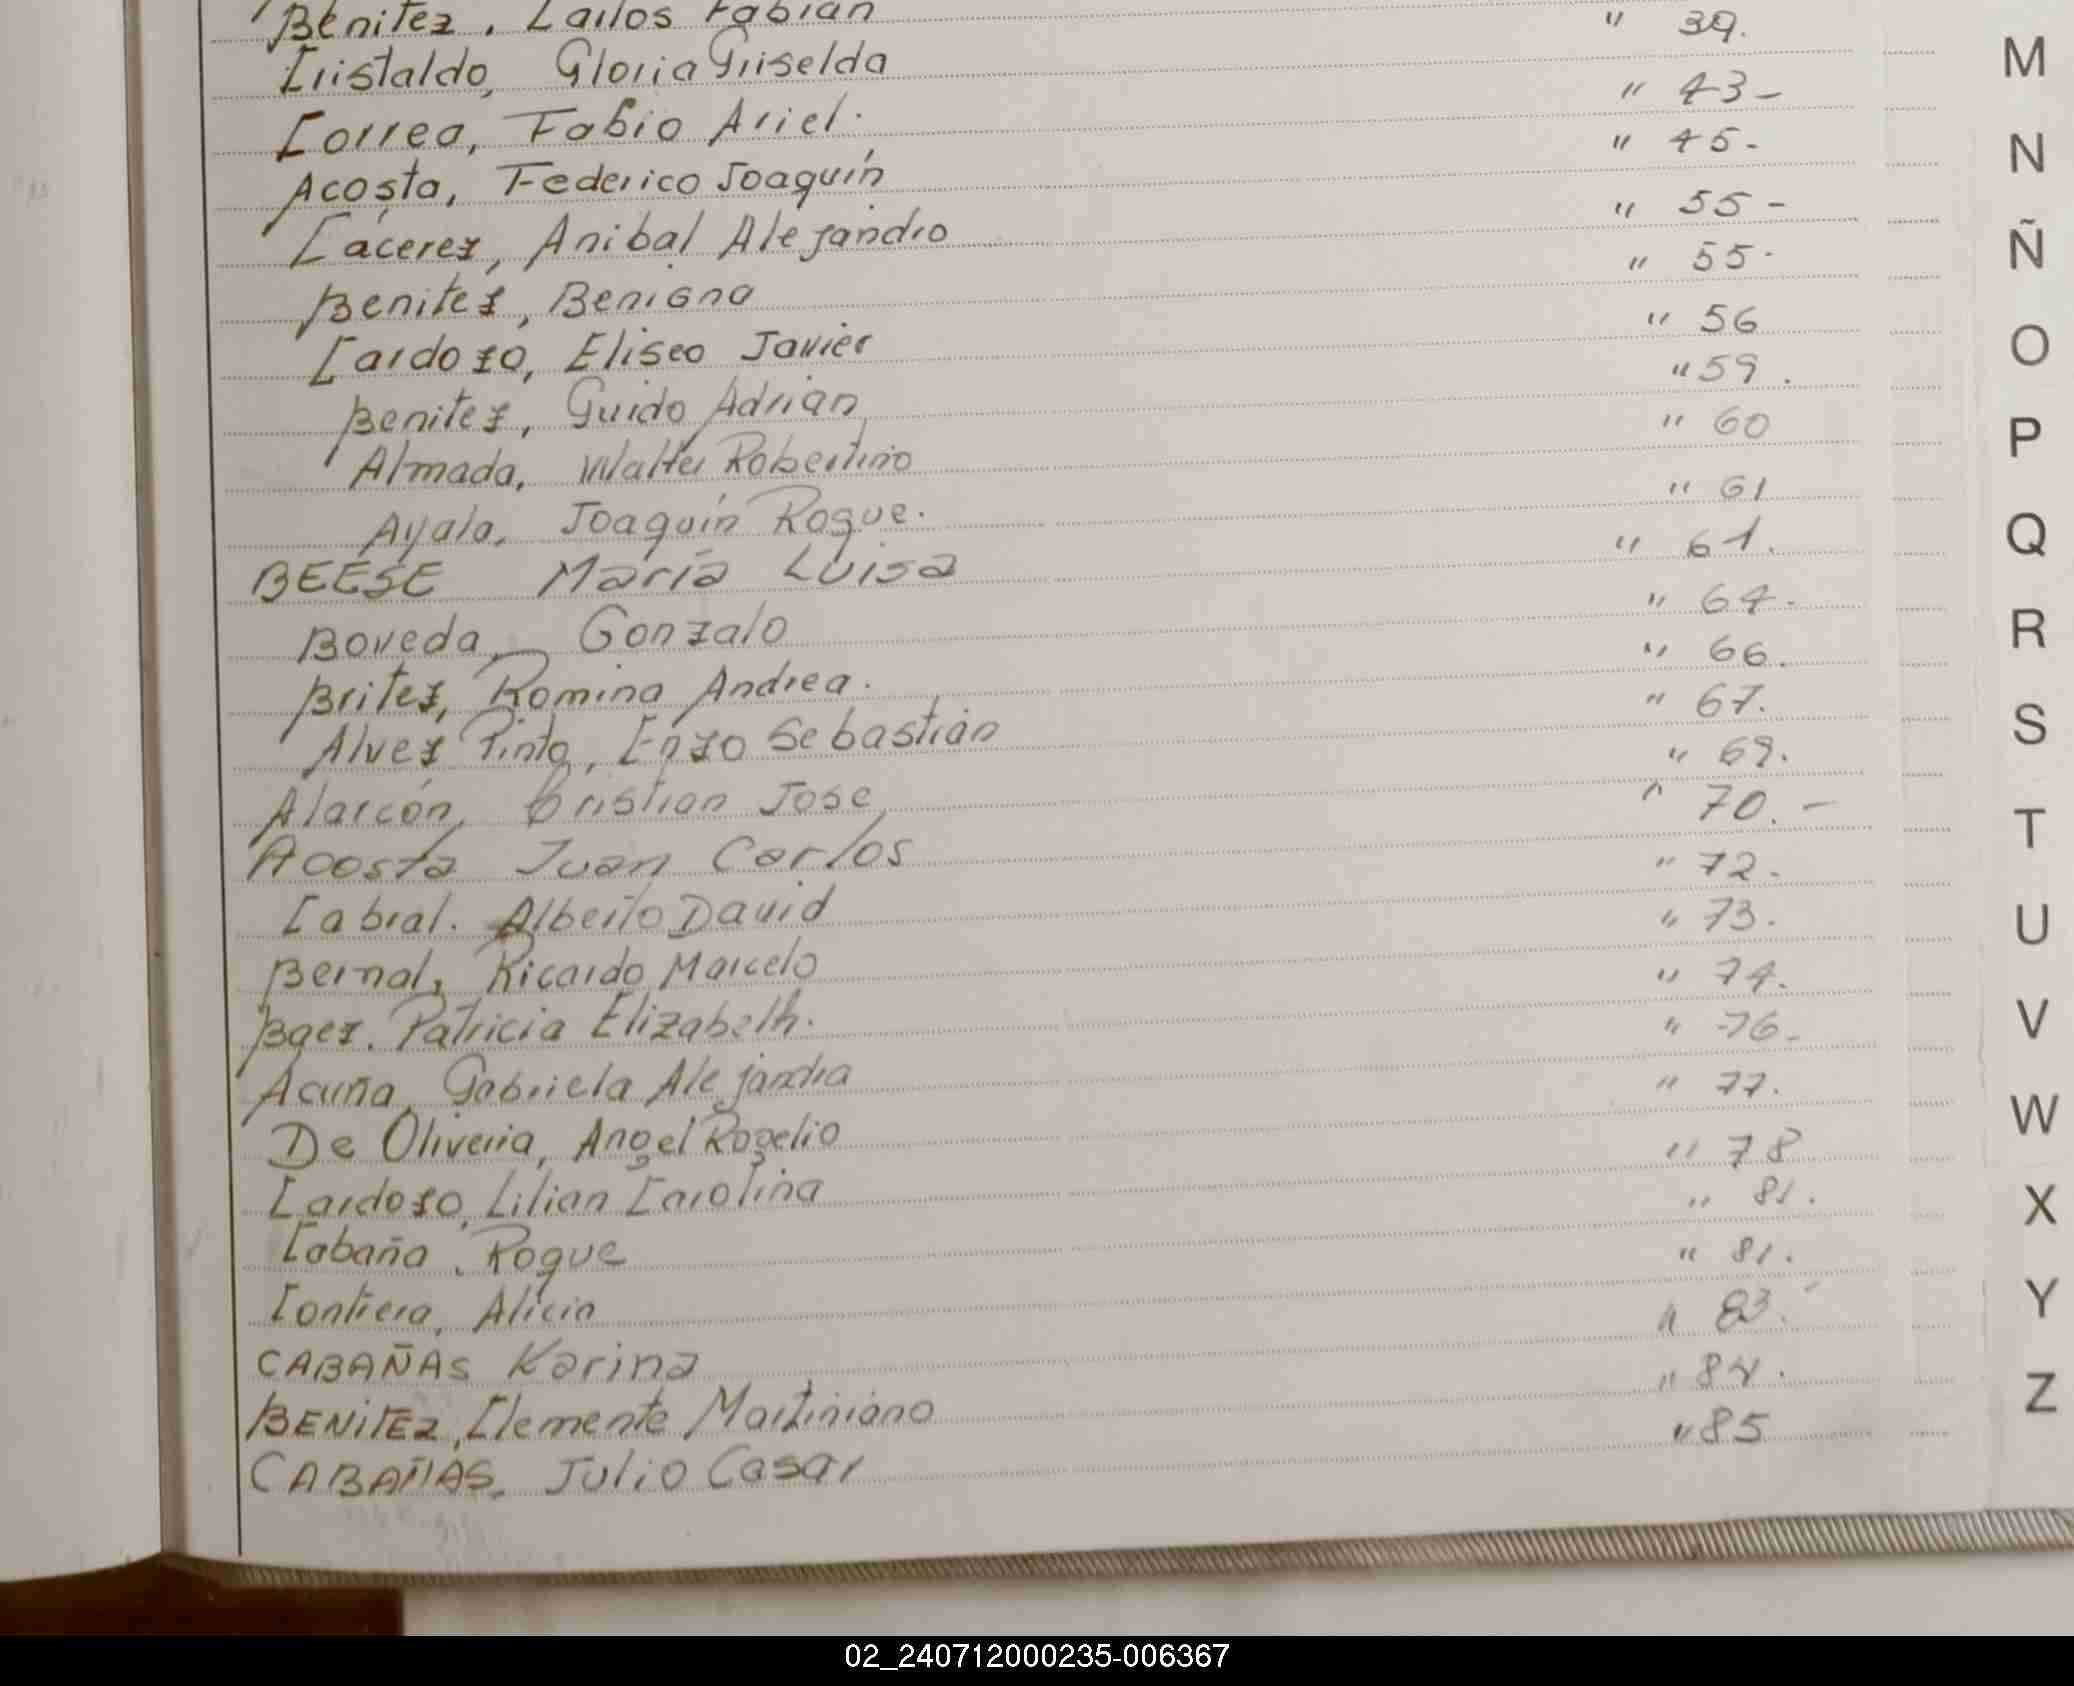 Benitez, Carlos Fabian
Cristaldo, Gloria Griselda " 39.
Correa, Fabio Ariel. " 43-
Acosta, Federico Joaquín " 45-
Cácerez, Anibal Alejandro " 55-
Benitez, Benigna " 55-
Cardozo, Eliseo Javier " 56
Benitez, Guido Adrian " 59.
Almada, Walter Robertino " 60
Ayala, Joaquín Roque. " 61
BEESE María Luisa " 61.
Boveda, Gonzalo " 64-
Britez, Romina Andrea. " 66.
Alvez Pinto, Enzo Sebastián " 67.
Alarcón, Cristian José " 69.
Acosta Juan Carlos " 70.-
Cabral. Alberto David " 72-
Bernal, Ricardo Marcelo " 73.
Baez. Patricia Elizabeth. " 74.
Acuña, Gabriela Alejandra " 76-
De Oliveira, Angel Rogelio " 77.
Cardozo, Lilian Carolina " 78
Cabaña, Roque " 81.
Contrera, Alicia " 81.
CABAÑAS Karina " 83.
BENITEZ, Clemente Martiniano " 84.
CABAÑAS, Julio Casar " 85
M
N
Ñ
O
P
Q
R
S
T
U
V
W
X
Y
Z
02_240712000235-006367